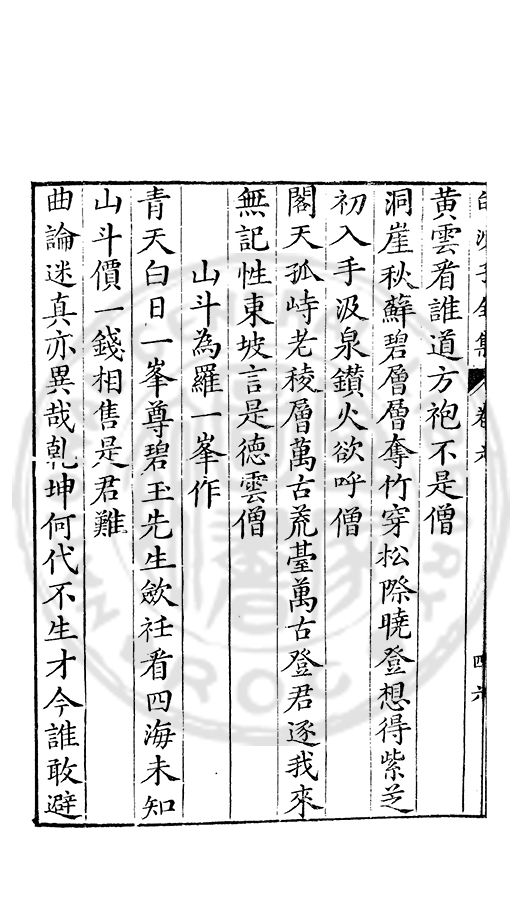 白沙子全集 卷 四六
黄雲看誰道方袍不是僧
洞崖秋蘚碧層層奪竹穿松際曉登想得紫芝
初入手汲泉鑚火欲呼僧
閣天孤峙老稜層萬古荒臺萬古登君逐我來
無記性東坡言是德雲僧
山斗為羅一峯作
青天白日一峯尊碧玉先生斂衽看四海未知
山斗價一錢相售是君難
曲論迷真亦異哉乾坤何代不生才今誰敢避